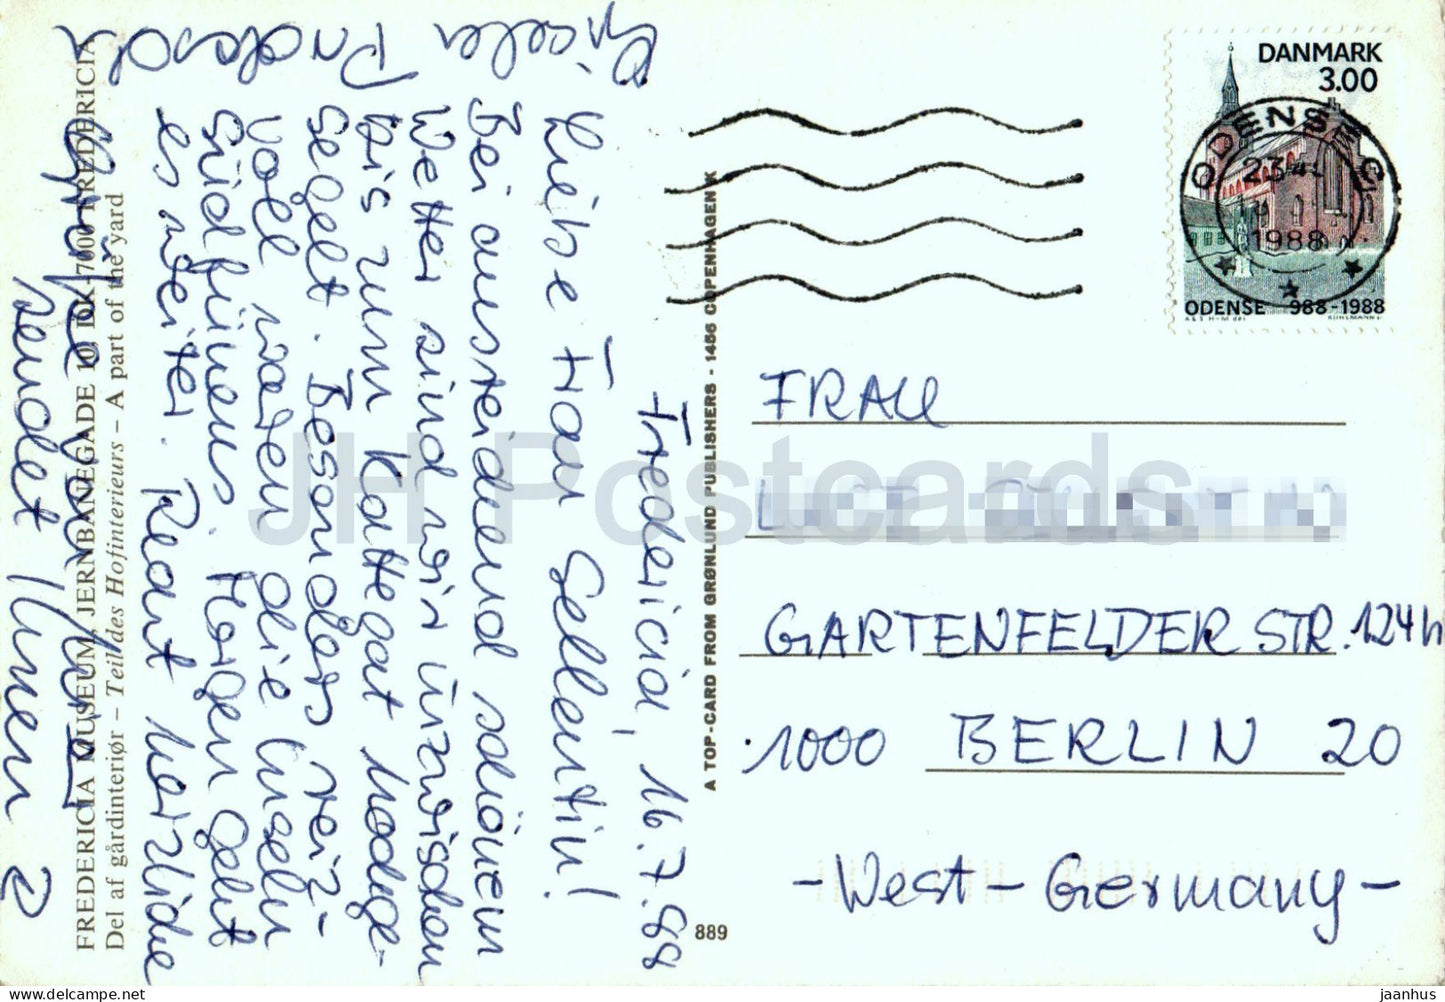 Fredericia, 16.7.88
Liebe Frau Sellentin!
Bei ausreichend schönem
Wetter sind wir inzwischen
bis zum Kattegat hochge-
segelt. Besonders reiz-
voll waren die Inseln
Südfünens. Morgen geht
es weiter. Recht herzliche
Grüße
sendet Ihnen
Gisela
DANMARK
3.00
ODENSE C
1988
ODENSE 988-1988
FRAU
GARTENFELDER STR. 124h
1000 BERLIN 20
- West - Germany -
A TOP-CARD FROM GRØNLUND PUBLISHERS - 1466 COPENHAGEN K
889
FREDERICIA MUSEUM, JERNBANEGADE 10, DK-7000 FREDERICIA
Del af gårdinteriør - Teil des Hofinterieurs - A part of the yard
JH Postcards
jaanhus.com